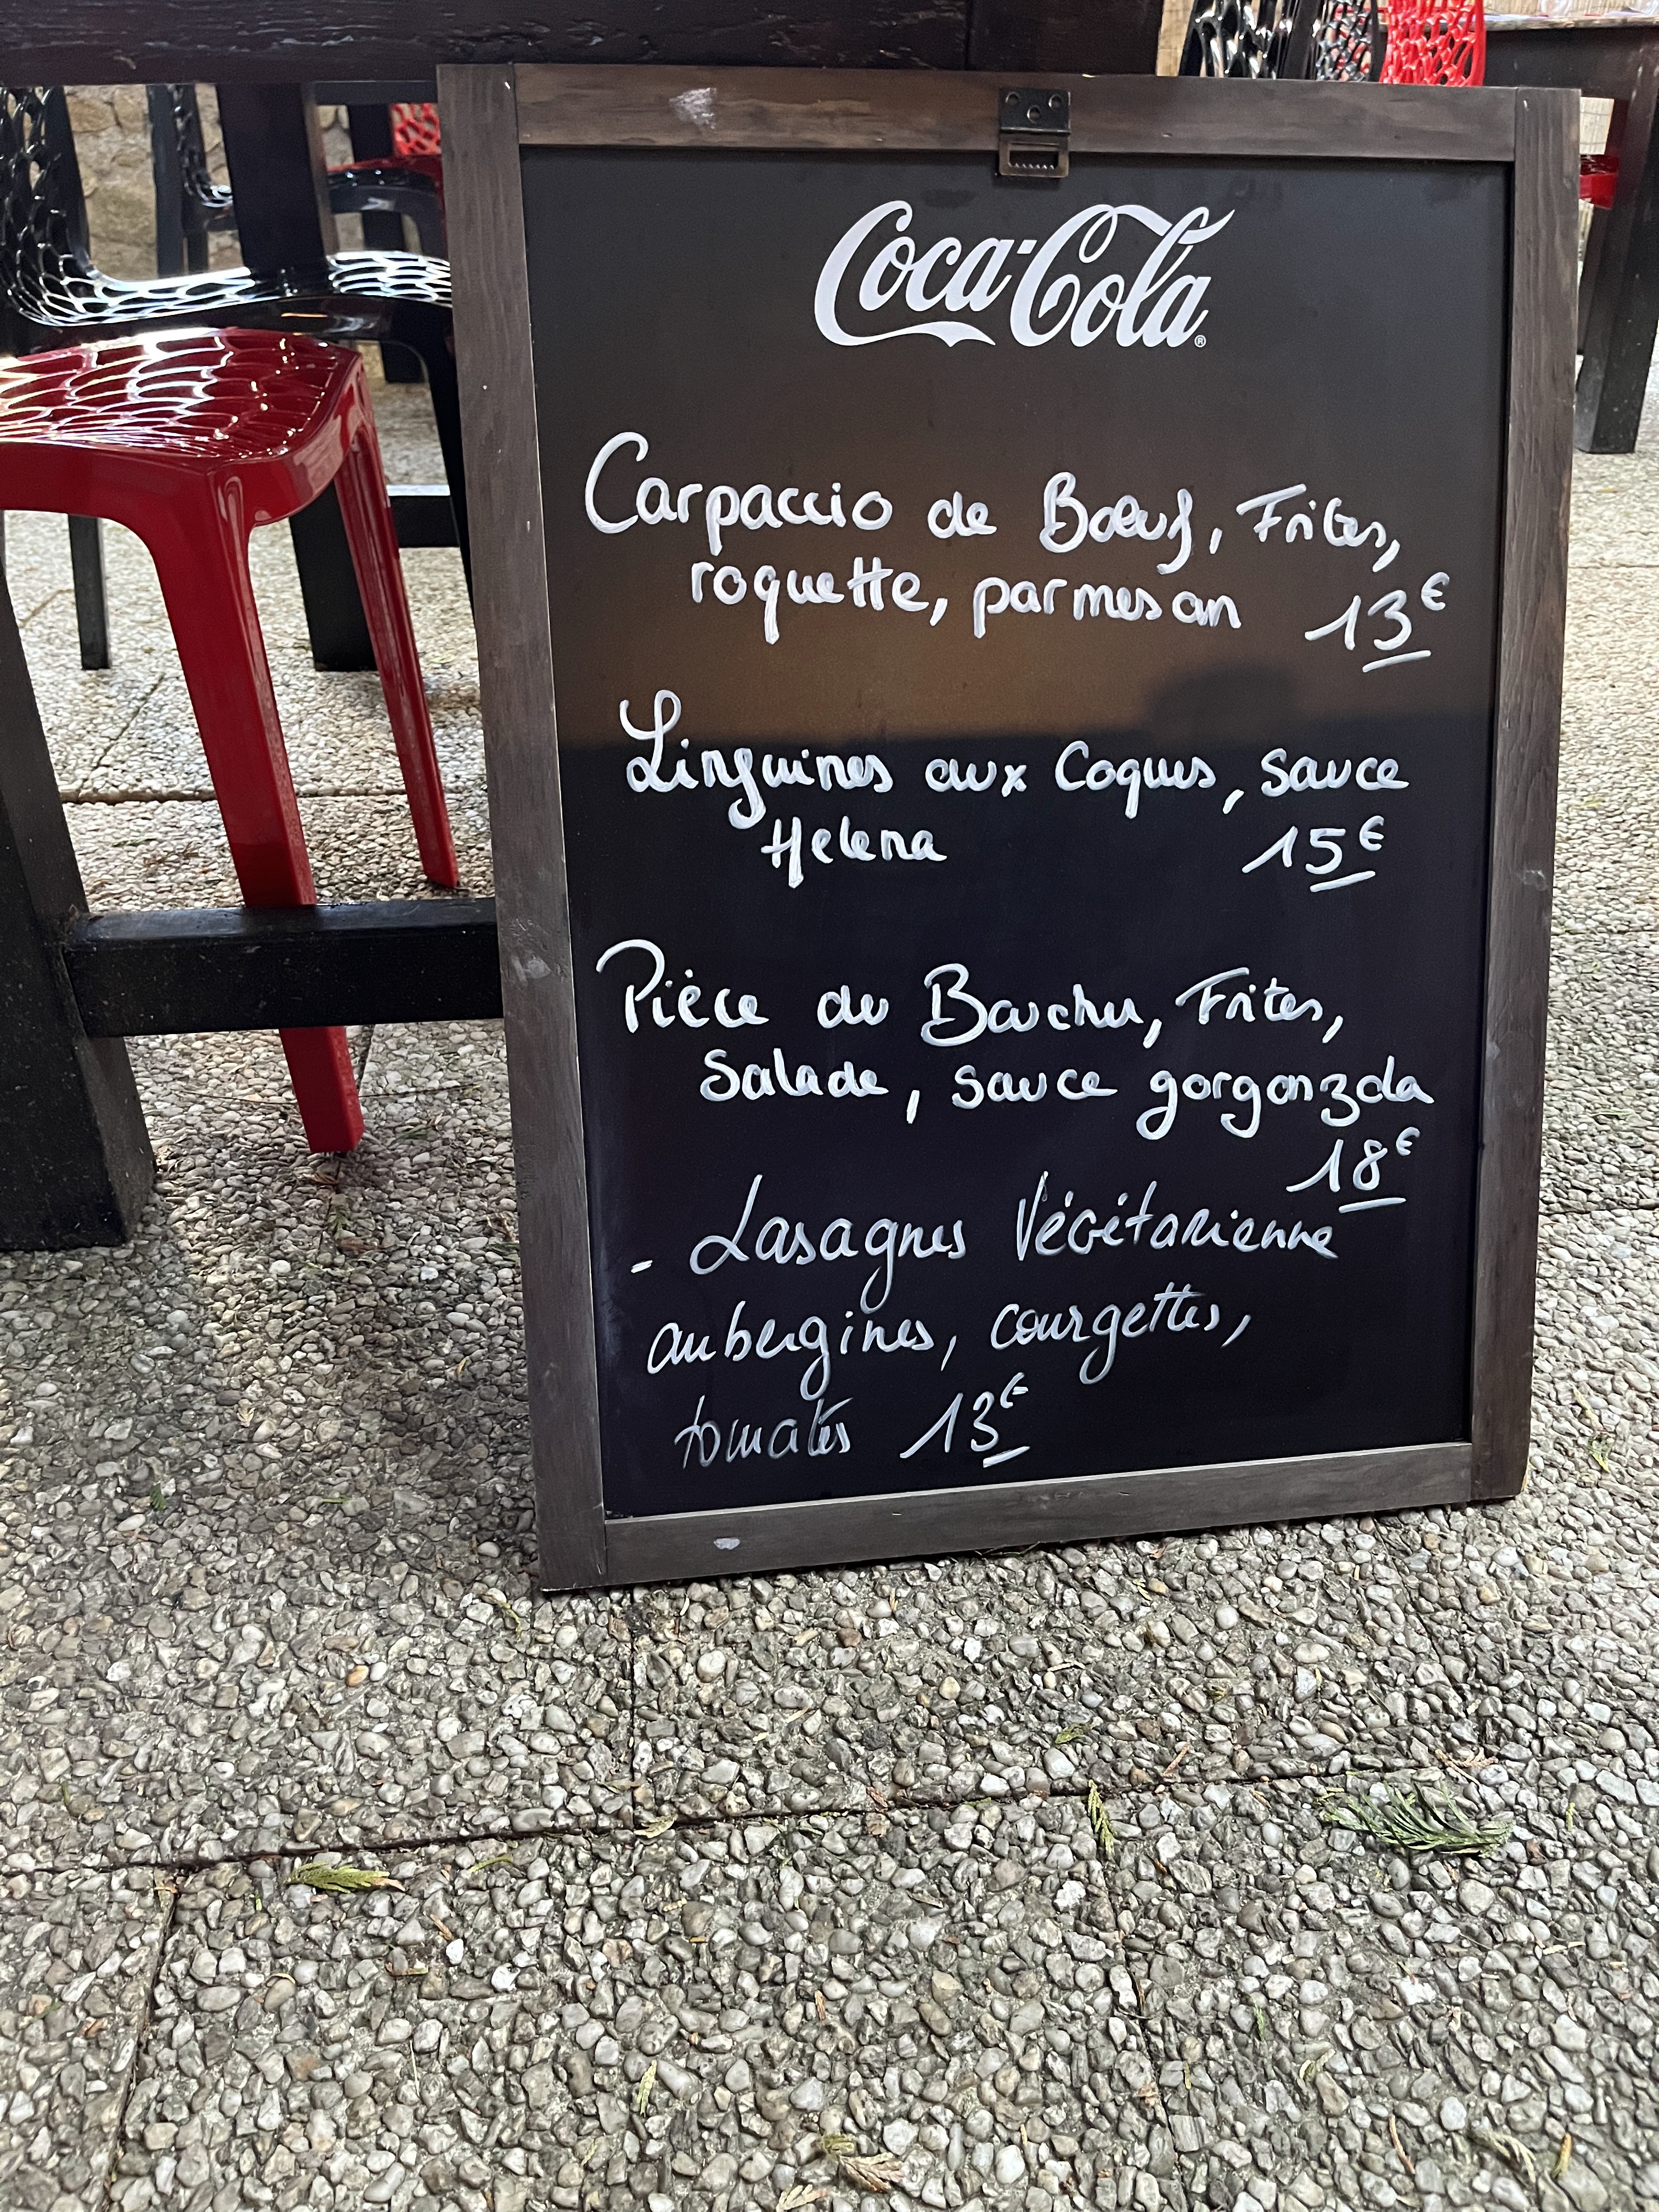 Coca-Cola®
Carpaccio de Bœuf, Frites,
roquette, parmesan 13€
Linguines aux Coques, sauce
Helena 15€
Pièce du Boucher, Frites,
Salade, sauce gorgonzola
18€
- Lasagnes Végétarienne
aubergines, courgettes,
tomates 13€